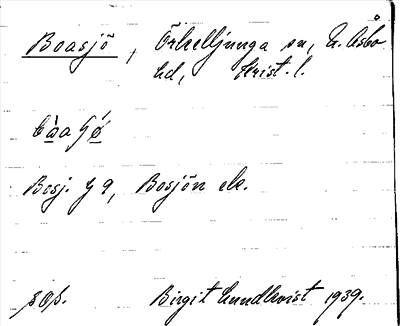 Boasjö, Örkelljunga sn, N. Åsbo
hd, Krist. l.
Bosj. G 9, Bosjön ek.
Birgit Lundkvist 1939.